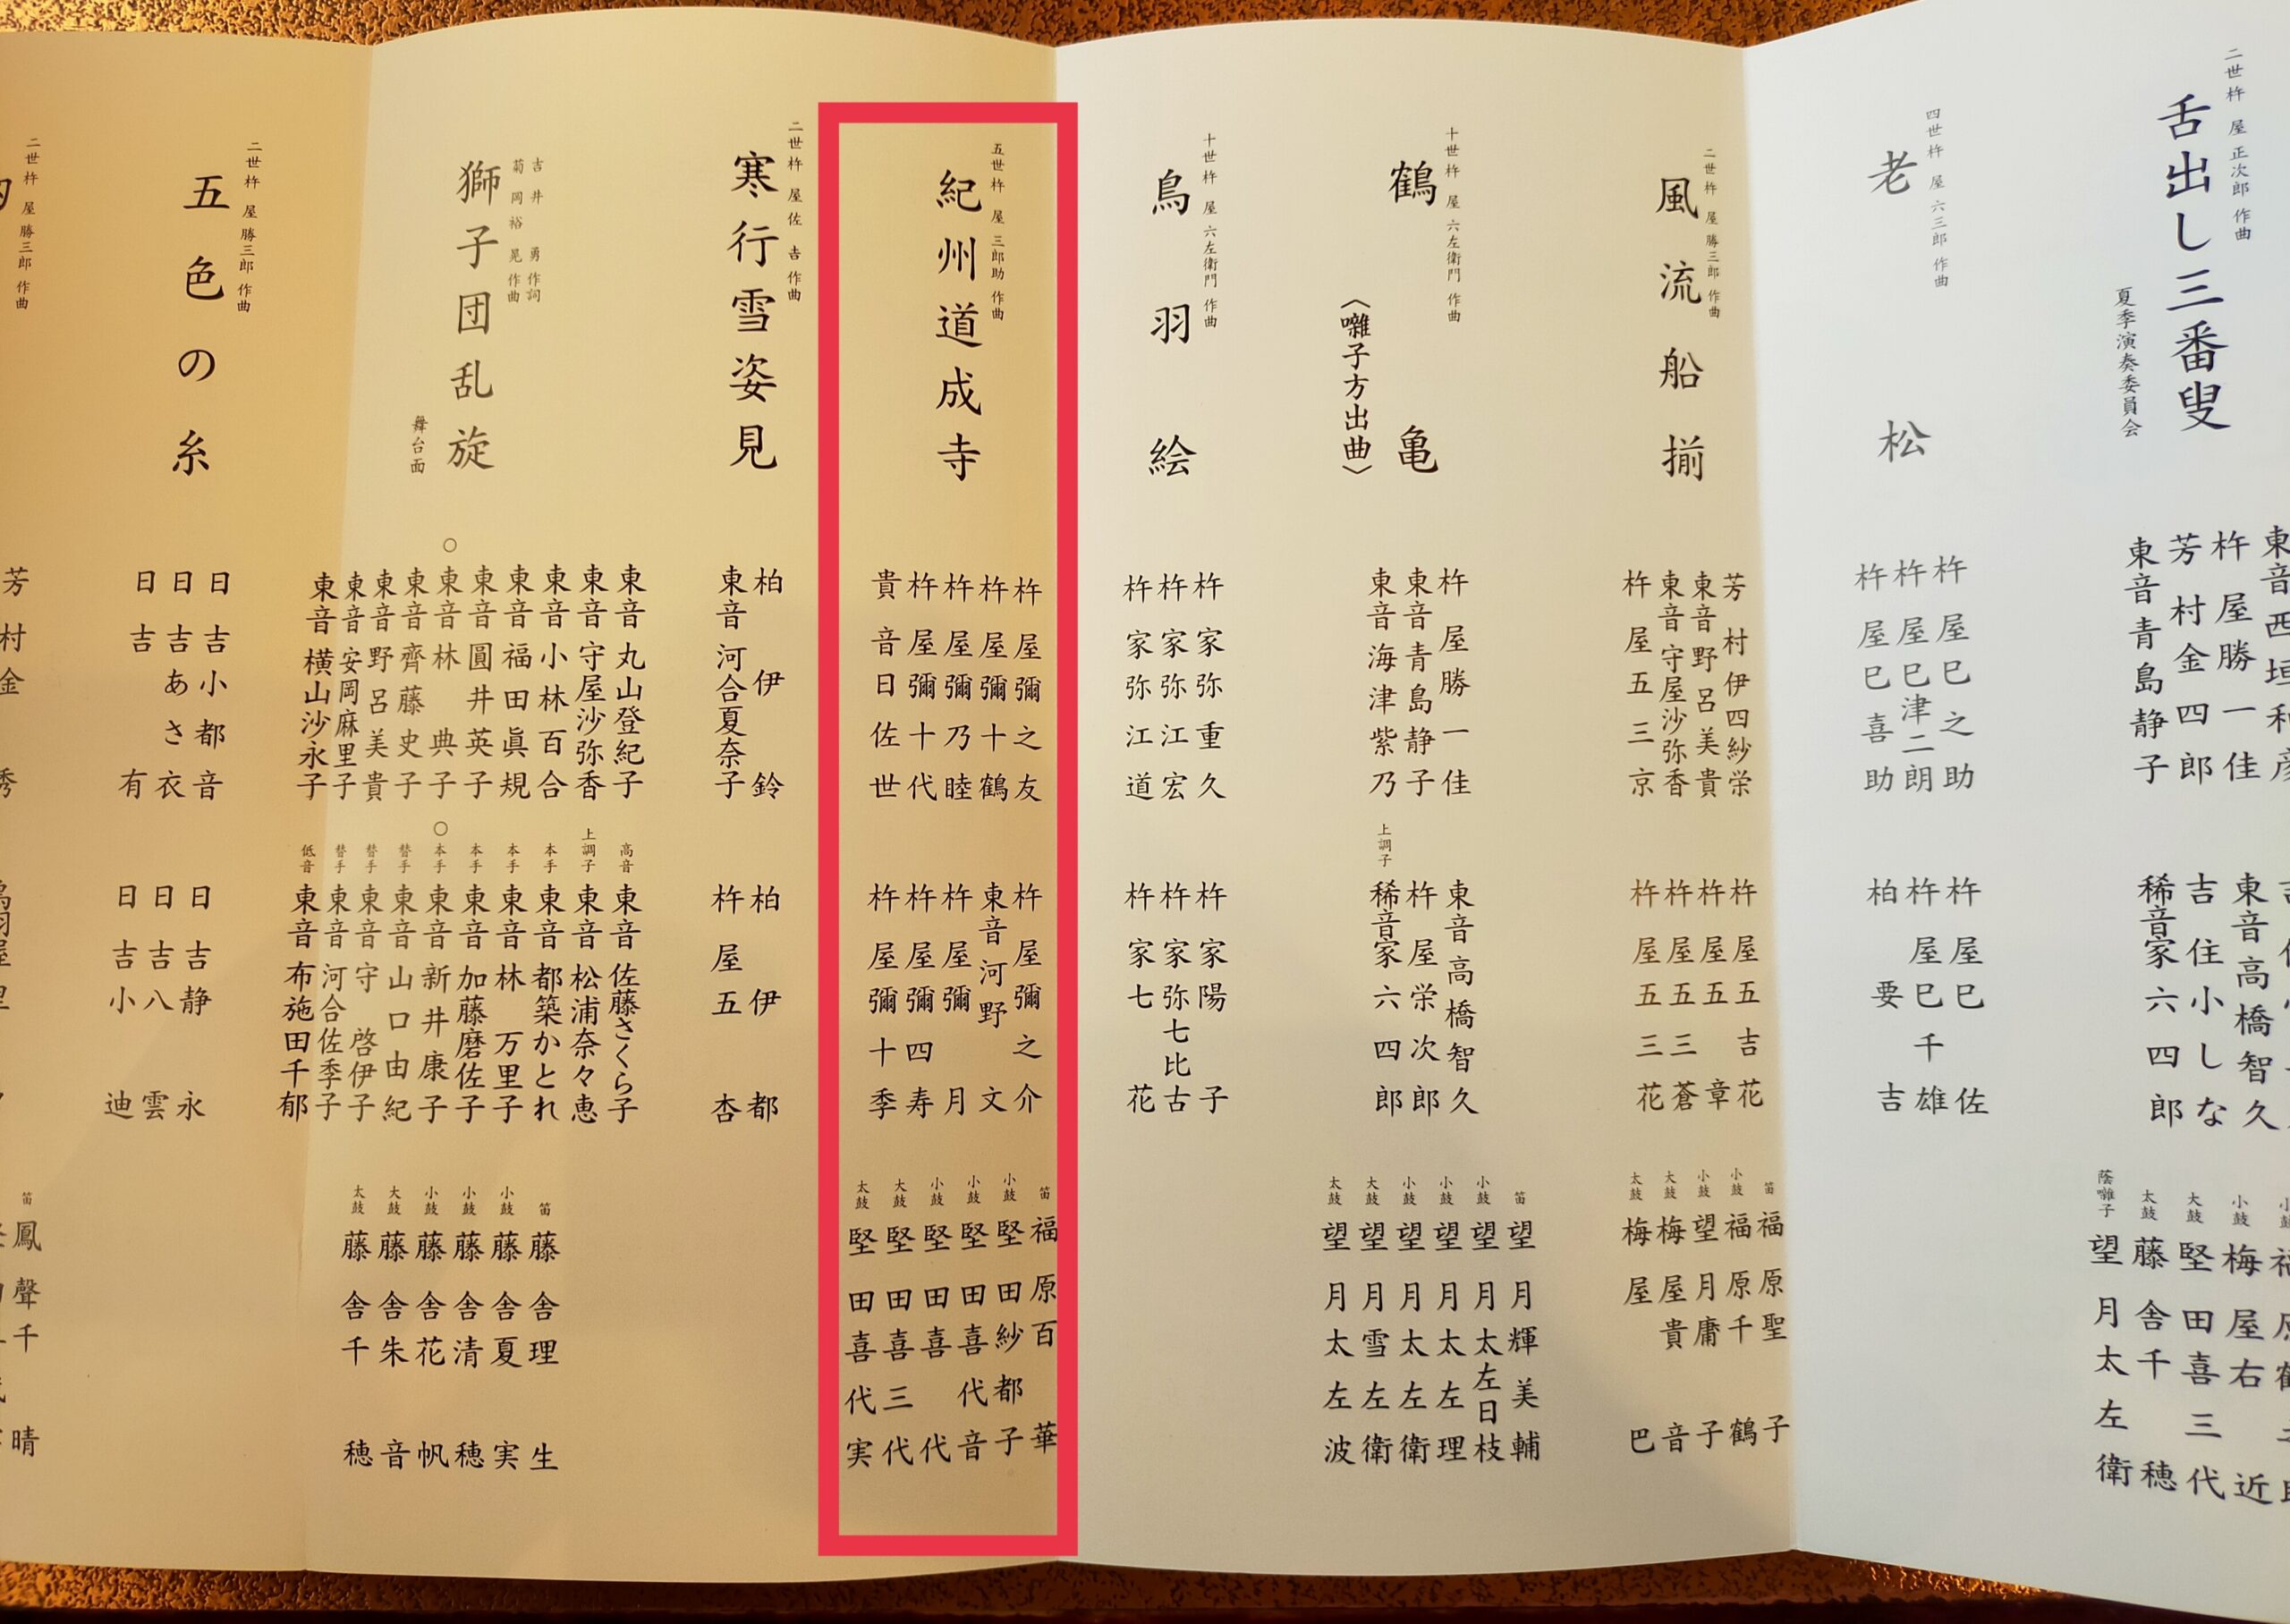 二世 杵屋正次郎 作曲
舌出し三番叟
夏季演奏委員会
杵屋勝一佳
芳村金四郎
東音青島静子
東音高橋智久
吉住小しな
稀音家六四郎
小鼓 梅屋右近
大鼓 堅田喜三代
太鼓 藤舎千穂
蔭囃子 望月太左衛
四世 杵屋六三郎 作曲
老松
杵屋巳之助
杵屋巳津二朗
杵屋巳喜助
杵屋巳佐
杵屋巳千雄
柏要吉
二世 杵屋勝三郎 作曲
風流船揃
芳村伊四紗栄
東音野呂美貴
東音守屋沙弥香
杵屋五三京
杵屋五吉花
杵屋五章
杵屋五三蒼
杵屋五三花
笛 福原聖子
小鼓 福原千鶴
小鼓 望月庸子
大鼓 梅屋貴音
太鼓 梅屋巴
十世 杵屋六左衛門 作曲
鶴亀
〈囃子方出曲〉
杵屋勝一佳
東音青島静子
東音海津紫乃
東音高橋智久
杵屋栄次郎
上調子 稀音家六四郎
笛 望月輝美輔
小鼓 望月太左日枝
小鼓 望月太左理
小鼓 望月太左衛
大鼓 望月雪左衛
太鼓 望月太左波
十世 杵屋六左衛門 作曲
鳥羽絵
杵家弥重久
杵家弥江宏
杵家弥江道
杵家陽子
杵家弥七比古
杵家七花
五世 杵屋三郎助 作曲
紀州道成寺
杵屋彌之友
杵屋彌十鶴
杵屋彌乃睦
杵屋彌十代
貴音日佐世
杵屋彌之介
東音河野文
杵屋彌月
杵屋彌四寿
杵屋彌十季
笛 福原百華
小鼓 堅田紗都子
小鼓 堅田喜代音
小鼓 堅田喜代
大鼓 堅田喜三代
太鼓 堅田喜代実
二世 杵屋佐吉 作曲
寒行雪姿見
柏伊鈴
東音河合夏奈子
柏伊都
杵屋五杏
吉井勇 作詞
菊岡裕晃 作曲
獅子団乱旋
舞台面
東音丸山登紀子
東音守屋沙弥香
東音小林百合
東音福田眞規
東音圓井英子
○東音林典子
東音齊藤史子
東音野呂美貴
東音安岡麻里子
東音横山沙永子
高音 東音佐藤さくら子
上調子 東音松浦奈々恵
本手 東音都築かとれ
本手 東音林万里子
本手 東音加藤磨佐子
○本手 東音新井康子
替手 東音山口由紀
替手 東音守啓伊子
替手 東音河合佐季子
低音 東音布施田千郁
笛 藤舎理生
小鼓 藤舎夏実
小鼓 藤舎清穂
小鼓 藤舎花帆
大鼓 藤舎朱音
太鼓 藤舎千穂
二世 杵屋勝三郎 作曲
五色の糸
日吉小都音
日吉あさ衣
日吉有
日吉静永
日吉八雲
日吉小迪
二世 杵屋勝三郎 作曲
芳村金
笛 鳳聲千晴